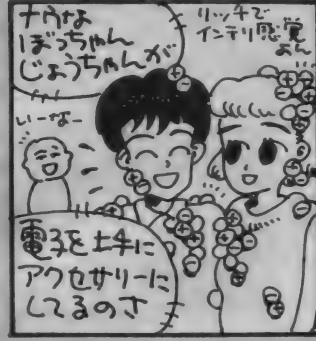 ナウな
ぼっちゃん
じょうちゃんが
リッチで
インテリ感覚
よん
いーなー
電子を土手に
アクセサリーに
してるのさ